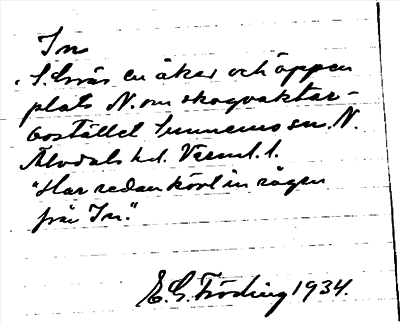 In
en åker och öppen
plats N. om skogvaktar-
bostället Sunnemo sn. N.
Älvdals hd. Värml. l.
"Har redan kört in rågen
från In."
E. G. Fröding 1934.